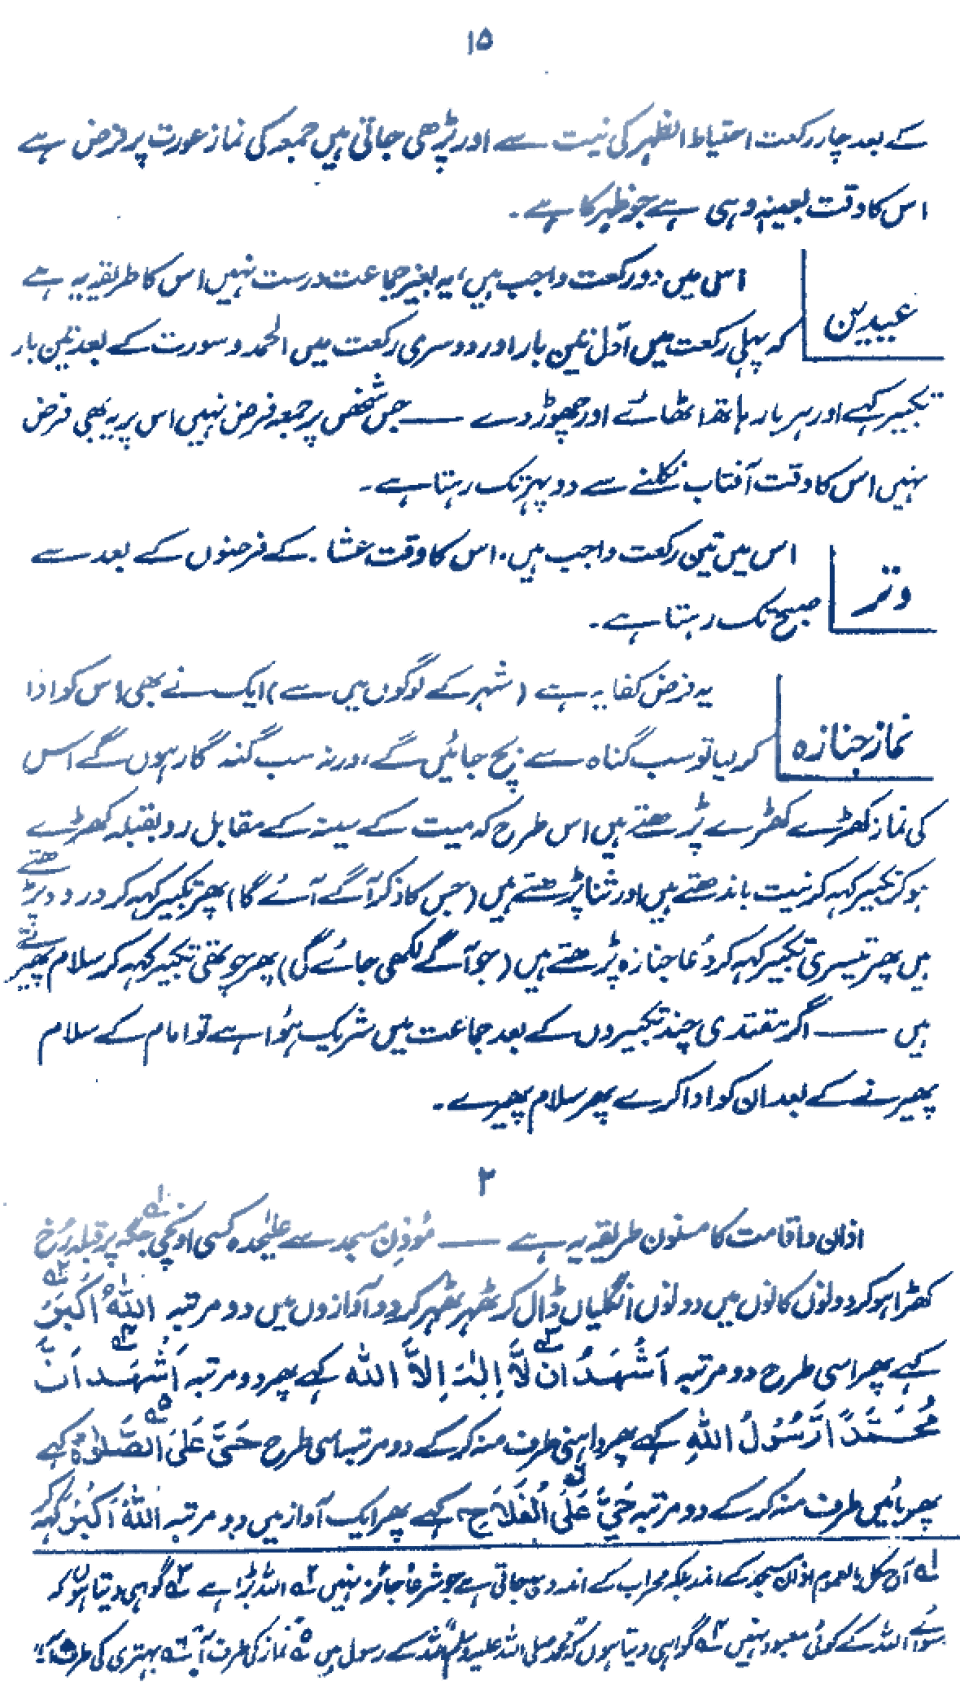 ۱۵
کے بعد چار رکعت احتیاط الظہر کی نیت سے اور پڑھی جاتی ہیں جمعہ کی نماز عورت پر فرض ہے
اس کا وقت بعینہٖ وہی ہے جو ظہر کا ہے۔
عیدین
اس میں دو رکعت واجب ہیں، یہ بغیر جماعت درست نہیں اس کا طریقہ یہ ہے
کہ پہلی رکعت میں اوّل تین بار اور دوسری رکعت میں الحمد و سورت کے بعد تین بار
تکبیر کہے اور ہر بار ہاتھ اٹھائے اور چھوڑ دے — جس شخص پر جمعہ فرض نہیں اس پر یہ بھی فرض
نہیں اس کا وقت آفتاب نکلنے سے دوپہر تک رہتا ہے۔
وتر
اس میں تین رکعت واجب ہیں، اس کا وقت عشا۔ کے فرضوں کے بعد سے
صبح تک رہتا ہے۔
نماز جنازہ
یہ فرض کفایہ ہے (شہر کے لوگوں میں سے) ایک نے بھی اس کو ادا
کر لیا تو سب گناہ سے بچ جائیں گے ورنہ سب گنہ گار ہوں گے اس
کی نماز کھڑے کھڑے پڑھتے ہیں اس طرح کہ میت کے سینہ کے مقابل رو بقبلہ کھڑے
ہو کر تکبیر کہہ کر نیت باندھتے ہیں اور ثنا پڑھتے ہیں (جس کا ذکر آگے آئے گا) پھر تکبیر کہہ کر درود پڑھتے
ہیں پھر تیسری تکبیر کہہ کر دُعا جنازہ پڑھتے ہیں (جو آگے لکھی جائے گی) پھر چوتھی تکبیر کہہ کر سلام پھیرتے
ہیں — اگر مقتدی چند تکبیروں کے بعد جماعت میں شریک ہُوا ہے تو امام کے سلام
پھیرنے کے بعد ان کو ادا کرے پھر سلام پھیرے۔
۲
اذان و اقامت کا مسنون طریقہ یہ ہے — مُوذن مسجد سے علیٰحدہ کسی اونچی جگہ پر قبلہ رُخ
کھڑا ہو کر دونوں کانوں میں دونوں انگلیاں ڈال کر ٹھہر ٹھہر کر دو آوازوں میں دو مرتبہ اَللّٰهُ اَكْبَرُ
کہے پھر اسی طرح دو مرتبہ اَشْهَدُ اَنْ لَّا اِلٰهَ اِلَّا اللّٰه کہے پھر دو مرتبہ اَشْهَدُ اَنَّ
مُحَمَّدًا رَّسُوْلُ اللّٰهِ کہے پھر داہنی طرف منہ کر کے دو مرتبہ اسی طرح حَيَّ عَلَى الصَّلٰوةِ کہے
پھر بائیں طرف منہ کر کے دو مرتبہ حَيَّ عَلَى الْفَلَاحِ کہے پھر ایک آواز میں دو مرتبہ اَللّٰهُ اَكْبَرُ کہہ کر
۱؎ آج کل بالعموم اذان مسجد کے اندر بلکہ محراب کے اندر دی جاتی ہے جو شرعاً جائز نہیں ۲؎ اللہ بڑا ہے ۳؎ گواہی دیتا ہوں کہ
سوائے اللہ کے کوئی معبود نہیں ۴؎ گواہی دیتا ہوں کہ محمد صلی اللہ علیہ وسلم اللہ کے رسول ہیں ۵؎ نماز کی طرف آ ۶؎ بہتری کی طرف آ